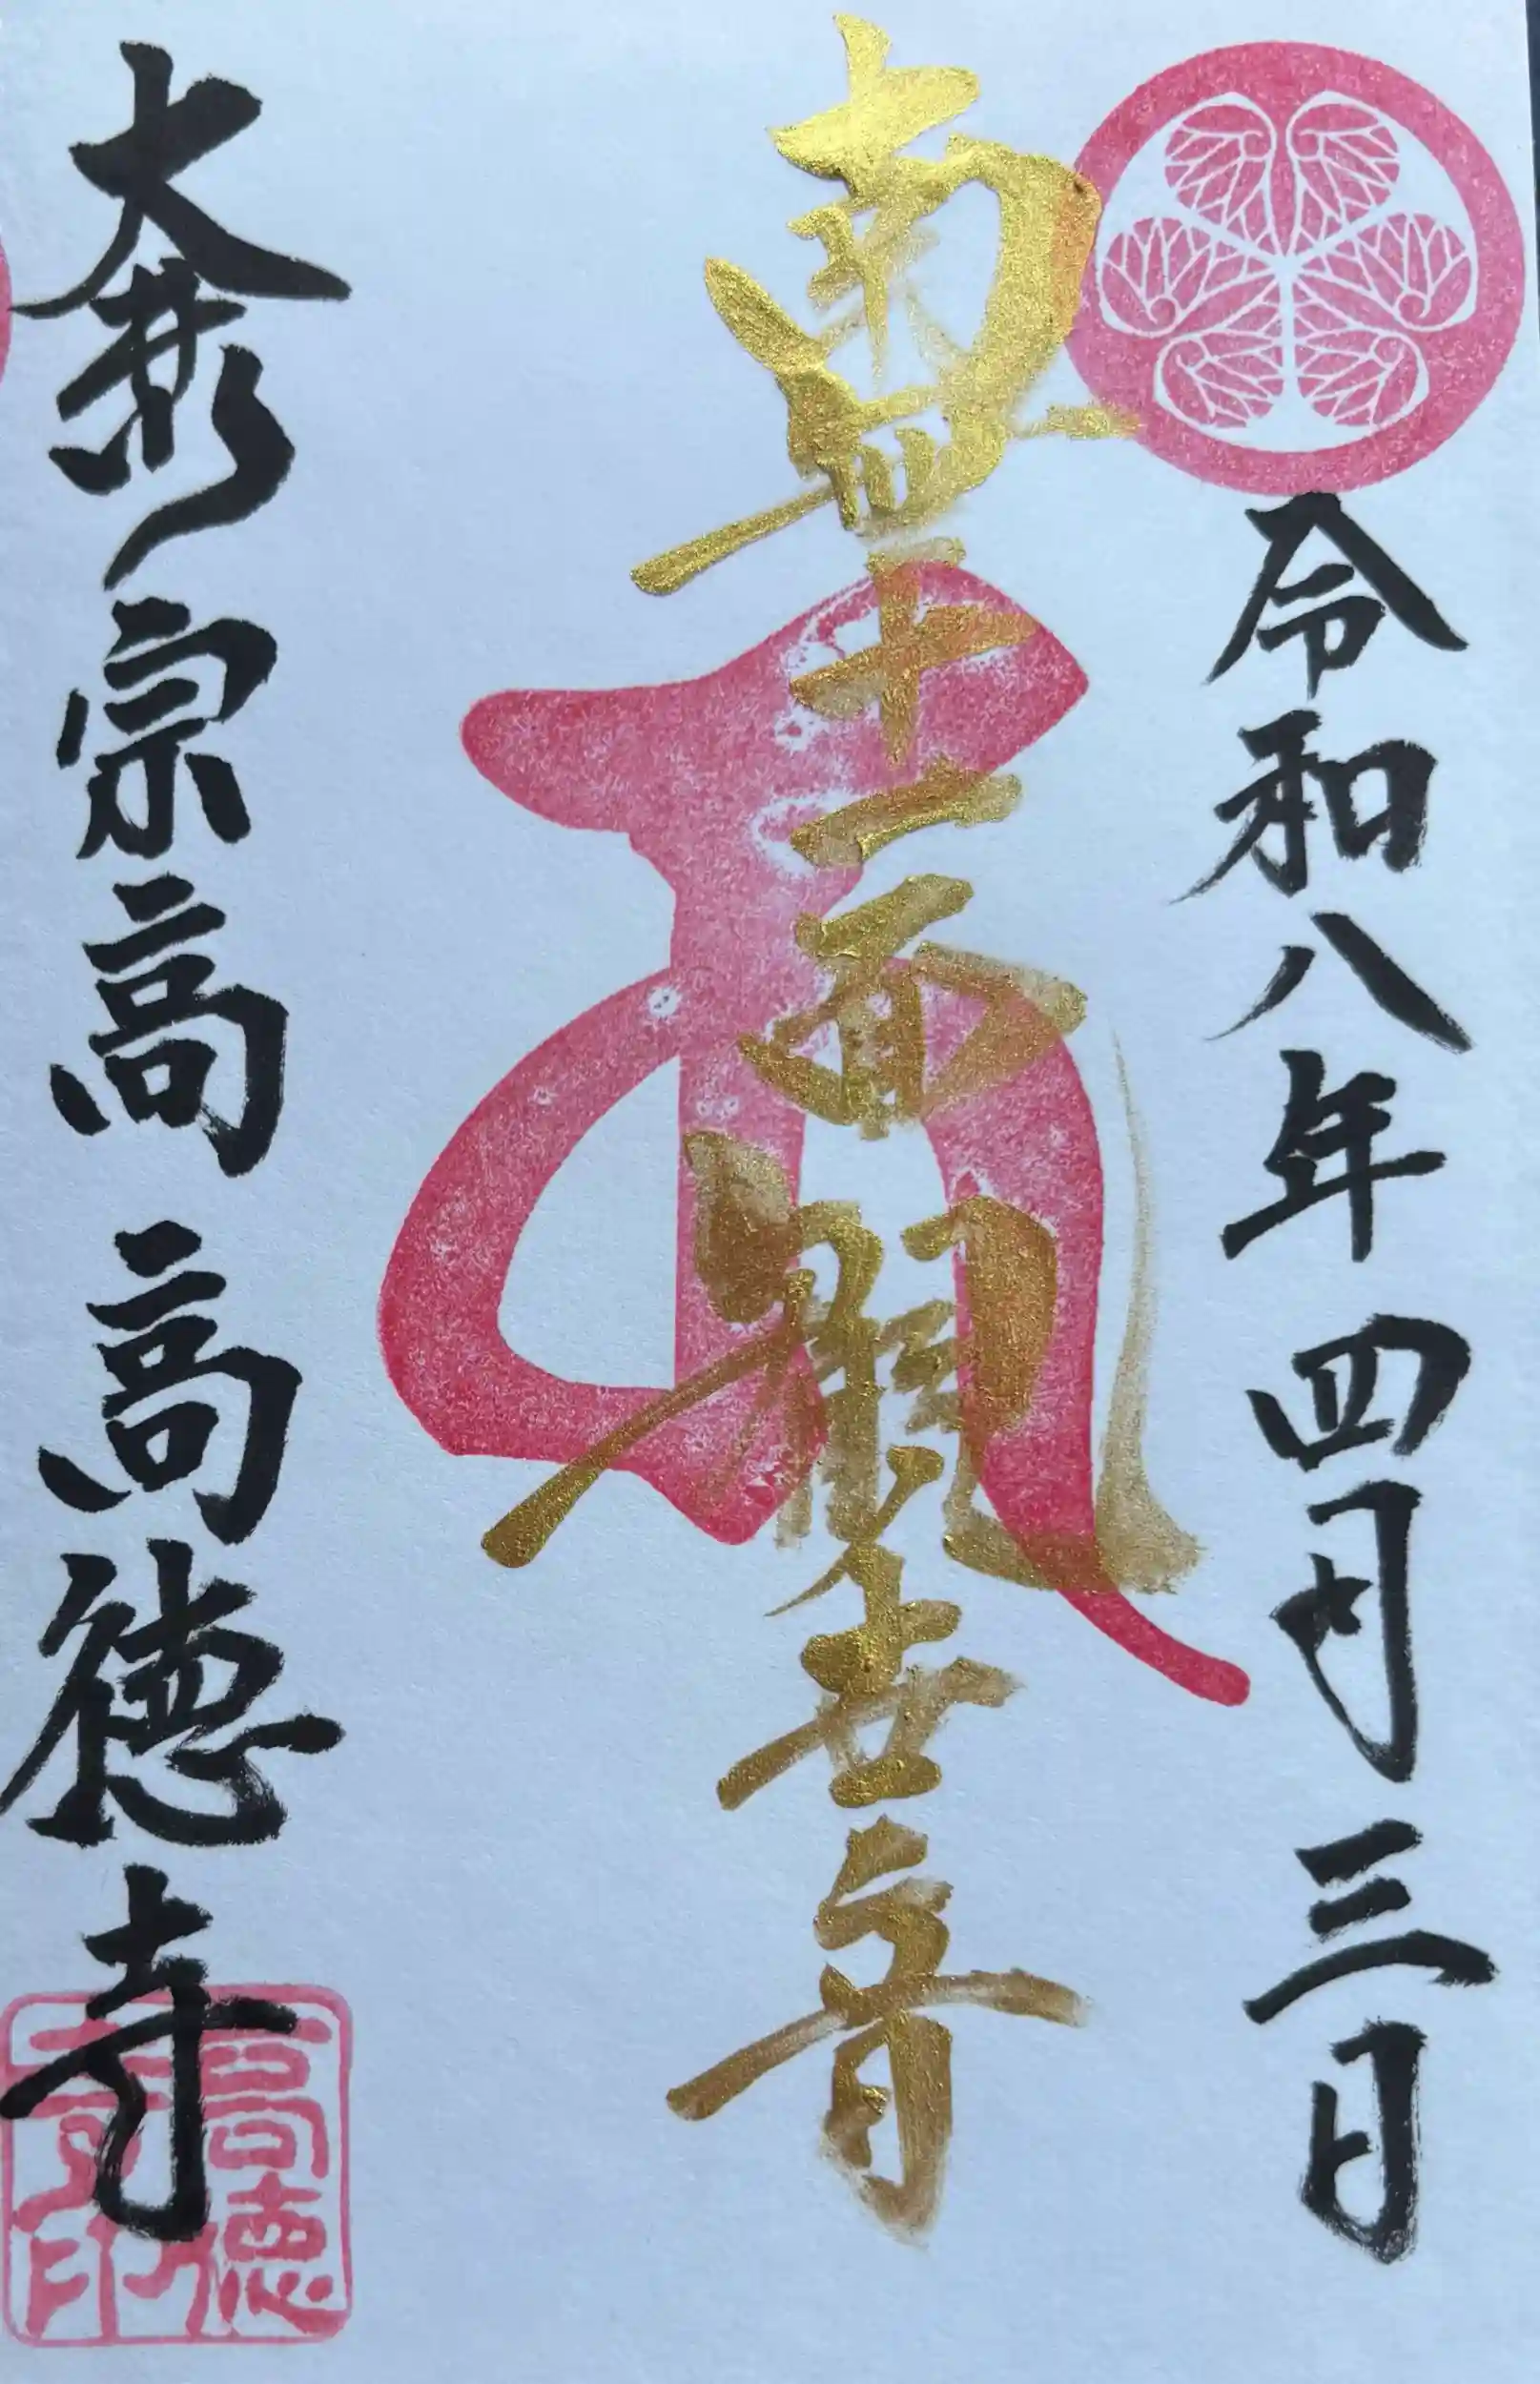 令和八年四月三日
南無十一面観世音
宗高 高徳寺
高徳寺印